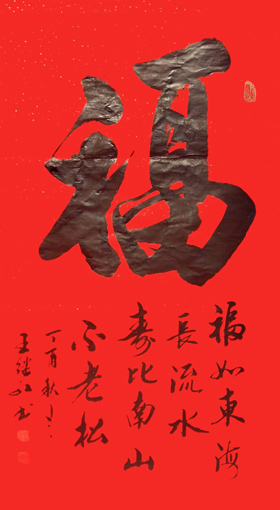 福
福如東海
長流水
壽比南山
不老松
丁酉秋
王繼紅書